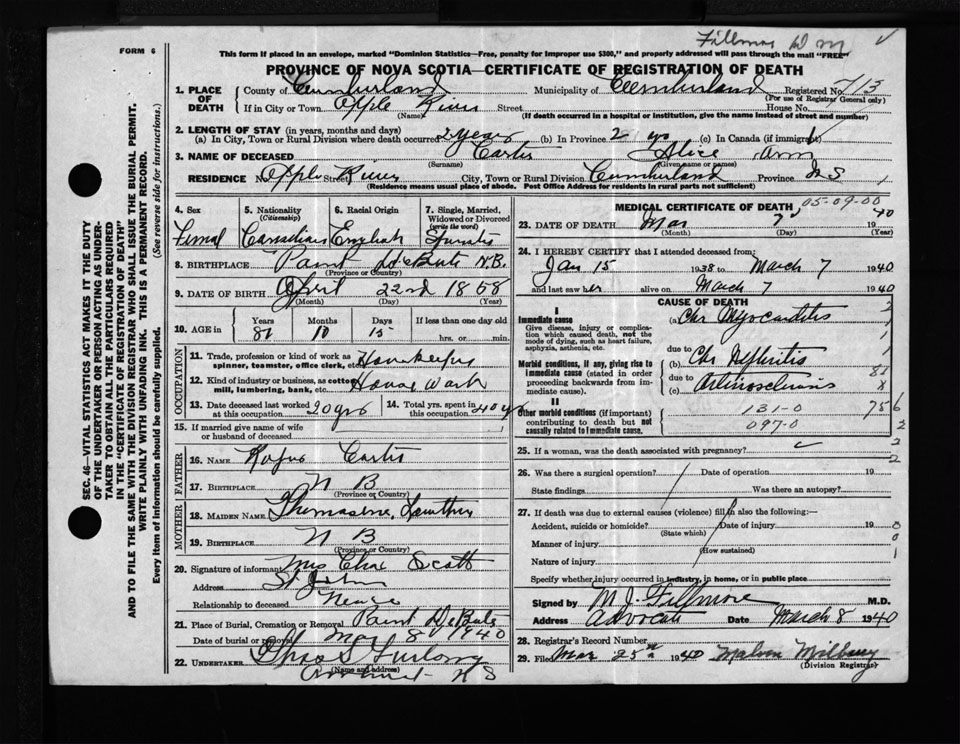 Fillmore Dr M
FORM 6
This form if placed in an envelope, marked "Dominion Statistics—Free, penalty for improper use $300," and properly addressed will pass through the mail "FREE"
PROVINCE OF NOVA SCOTIA—CERTIFICATE OF REGISTRATION OF DEATH
1. PLACE OF DEATH
County of Cumberland Municipality of Cumberland Registered No. 713
(For use of Registrar General only)
If in City or Town Apple River Street House No.
(Name) (If death occurred in a hospital or institution, give the name instead of street and number)
2. LENGTH OF STAY (in years, months and days)
(a) In City, Town or Rural Division where death occurred 2 years (b) In Province 2 yrs (c) In Canada (if immigrant)
3. NAME OF DECEASED Carter Alice Ann
(Surname) (Given name or names)
RESIDENCE No. Apple Street River City, Town or Rural Division Cumberland Province N S
(Residence means usual place of abode. Post Office Address for residents in rural parts not sufficient)
SEC. 46—VITAL STATISTICS ACT MAKES IT THE DUTY
OF THE UNDERTAKER OR PERSON ACTING AS UNDER-
TAKER TO OBTAIN ALL THE PARTICULARS REQUIRED
IN THE "CERTIFICATE OF REGISTRATION OF DEATH"
AND TO FILE THE SAME WITH THE DIVISION REGISTRAR WHO SHALL ISSUE THE BURIAL PERMIT.
WRITE PLAINLY WITH UNFADING INK. THIS IS A PERMANENT RECORD.
Every item of Information should be carefully supplied. (See reverse side for instructions.)
4. Sex 5. Nationality 6. Racial Origin 7. Single, Married, Widowed or Divorced
(Citizenship) (write the word)
Femal Canadian English
8. BIRTHPLACE Point De Bute N.B.
(Province or Country)
9. DATE OF BIRTH April 22nd 1858
(Month) (Day) (Year)
10. AGE in Years Months Days If less than one day old
81 10 15 hrs. or min.
OCCUPATION
11. Trade, profession or kind of work as spinner, teamster, office clerk, etc. Housekeeper
12. Kind of industry or business, as cotton mill, lumbering, bank, etc. House Work
13. Date deceased last worked at this occupation 20 yrs 14. Total yrs. spent in this occupation 40 yrs
15. If married give name of wife or husband of deceased
FATHER
16. Name Rufus Carter
17. Birthplace N B
(Province or Country)
MOTHER
18. Maiden Name Thomasene Lowther
19. Birthplace N B
(Province or Country)
20. Signature of informant Mrs Chas Scott
Address St John
Relationship to deceased Neice
21. Place of Burial, Cremation or Removal Point De Bute
Date of burial or removal Mar 8 1940
22. UNDERTAKER Chas S Furlong
(Name and address)
N S
MEDICAL CERTIFICATE OF DEATH 05-09-00
23. DATE OF DEATH Mar 7 1940
(Month) (Day) (Year)
24. I HEREBY CERTIFY that I attended deceased from:
Jan 15 1938 to March 7 1940
and last saw her alive on March 7 1940
CAUSE OF DEATH
I
Immediate cause (a) Chr Myocarditis
Give disease, injury or complication which caused death, not the mode of dying, such as heart failure, asphyxia, asthenia, etc.
due to
Morbid conditions, if any, giving rise to immediate cause (stated in order proceeding backwards from immediate cause). (b) Chr Nephritis
due to
(c) Arteriosclerosis
II
Other morbid conditions (if important) contributing to death but not causally related to immediate cause.
131-0
097-0
25. If a woman, was the death associated with pregnancy?
26. Was there a surgical operation? Date of operation 19
State findings Was there an autopsy?
27. If death was due to external causes (violence) fill in also the following:—
Accident, suicide or homicide? Date of injury 19
(State which)
Manner of injury
(How sustained)
Nature of injury
Specify whether injury occurred in industry, in home, or in public place
Signed by M. J. Fillmore M.D.
Address Advocate Date March 8 1940
28. Registrar's Record Number
29. Filed Mar 25th 1940
(Division Registrar)